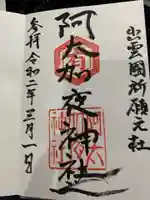 出雲國祈願元社
阿太加夜神社
参拝令和二年三月一日